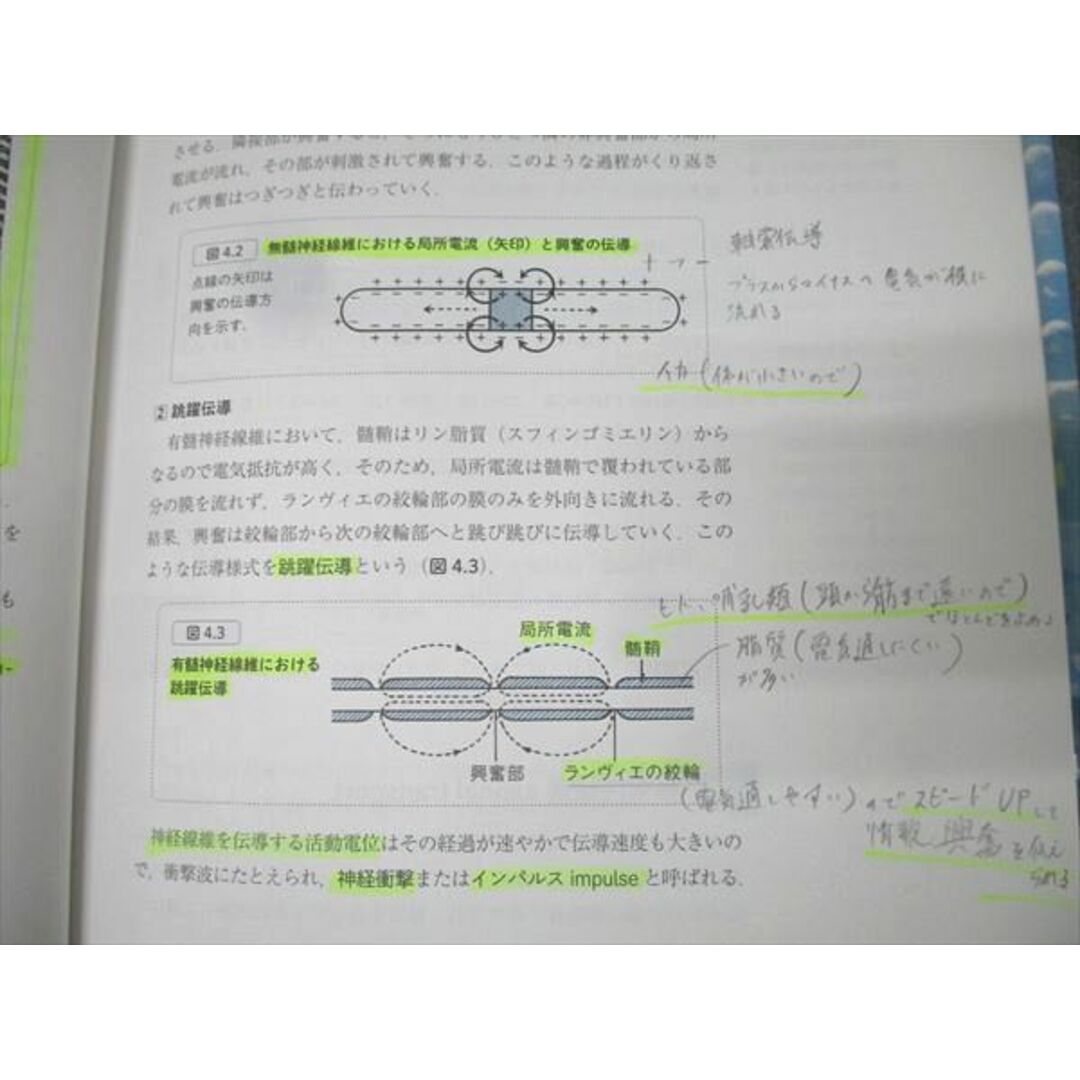 させる．隣接部が興奮すると，
電流が流れ，その部が刺激されて興奮する．このような過程がくり返さ
れて興奮はつぎつぎと伝わっていく．
図 4.2 無髄神経線維における局所電流（矢印）と興奮の伝導
点線の矢印は
興奮の伝導方
向を示す．
＋→－
プラスからマイナスへ電気が横に
流れる
イカ（体が小さいので）
② 跳躍伝導
有髄神経線維において，髄鞘はリン脂質（スフィンゴミエリン）から
なるので電気抵抗が高く，そのため，局所電流は髄鞘で覆われている部
分の膜を流れず，ランヴィエの絞輪部の膜のみを外向きに流れる．その
結果，興奮は絞輪部から次の絞輪部へと跳び跳びに伝導していく．この
ような伝導様式を跳躍伝導という（図 4.3）．
ヒト、哺乳類（頭から筋まで遠いので）
図 4.3
有髄神経線維における
跳躍伝導
局所電流
髄鞘
脂質（電気通しにくい）
が多い
興奮部
ランヴィエの絞輪
（電気通しやすい）のでスピードUPして
情報、興奮を伝え
られる
神経線維を伝導する活動電位はその経過が速やかで伝導速度も大きいの
で，衝撃波にたとえられ，神経衝撃またはインパルス impulse と呼ばれる．
を
も